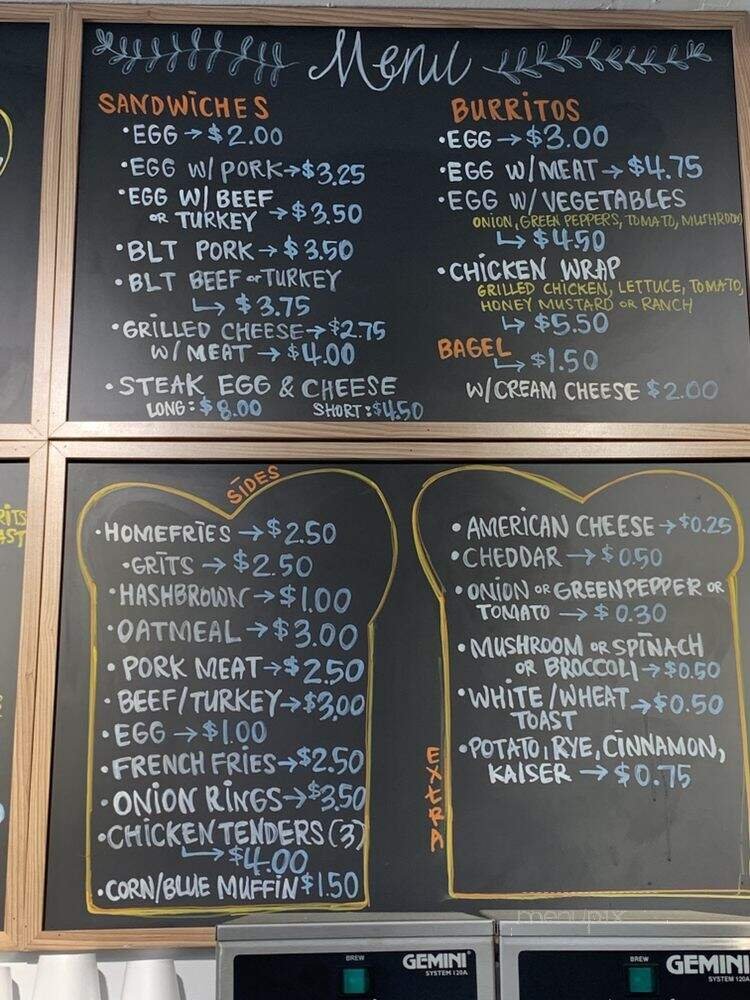 Menu
SANDWICHES
•EGG → $2.00
•EGG W/ PORK → $3.25
•EGG W/ BEEF
OR TURKEY → $3.50
•BLT PORK → $3.50
•BLT BEEF or TURKEY
↳ $3.75
•GRILLED CHEESE → $2.75
W/ MEAT → $4.00
•STEAK EGG & CHEESE
LONG: $8.00 SHORT: $4.50
BURRITOS
•EGG → $3.00
•EGG W/MEAT → $4.75
•EGG W/VEGETABLES
ONION, GREEN PEPPERS, TOMATO, MUSHROOM
↳ $4.50
•CHICKEN WRAP
GRILLED CHICKEN, LETTUCE, TOMATO,
HONEY MUSTARD OR RANCH
↳ $5.50
BAGEL
↳ $1.50
W/CREAM CHEESE $2.00
SIDES
•HOMEFRIES → $2.50
•GRITS → $2.50
•HASHBROWN → $1.00
•OATMEAL → $3.00
•PORK MEAT → $2.50
•BEEF/TURKEY → $3.00
•EGG → $1.00
•FRENCH FRIES → $2.50
•ONION RINGS → $3.50
•CHICKEN TENDERS (3)
↳ $4.00
•CORN/BLUE MUFFIN $1.50
EXTRA
•AMERICAN CHEESE → $0.25
•CHEDDAR → $0.50
•ONION OR GREEN PEPPER OR
TOMATO → $0.30
•MUSHROOM OR SPINACH
OR BROCCOLI → $0.50
•WHITE/WHEAT → $0.50
TOAST
•POTATO, RYE, CINNAMON,
KAISER → $0.75
menupix
BREW GEMINI
SYSTEM 120A
BREW GEMINI
SYSTEM 120A